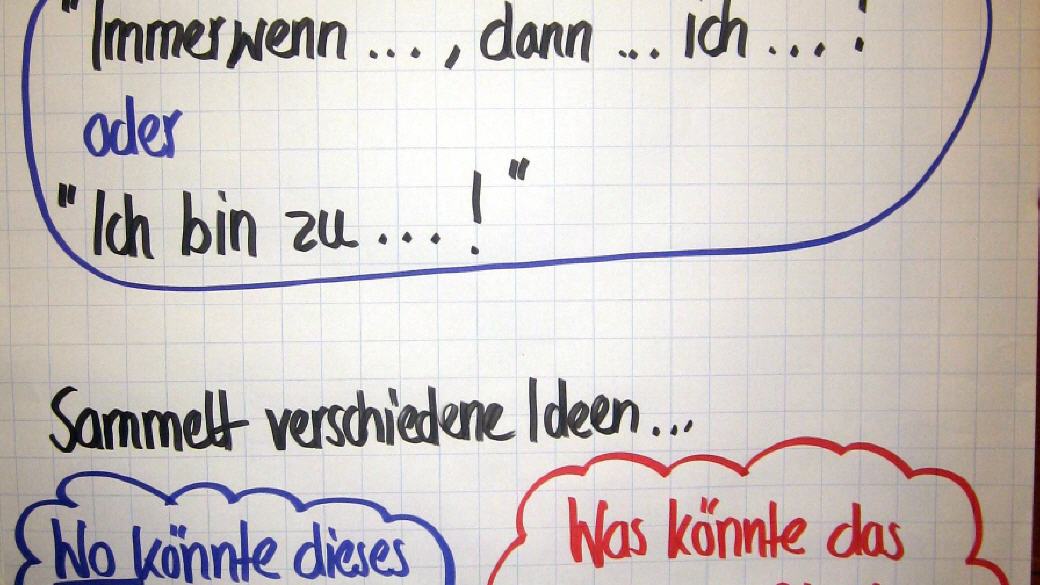 "Immer wenn ..., dann ... ich ...!
oder
"Ich bin zu ...!"
Sammelt verschiedene Ideen...
Wo könnte dieses
Was könnte das